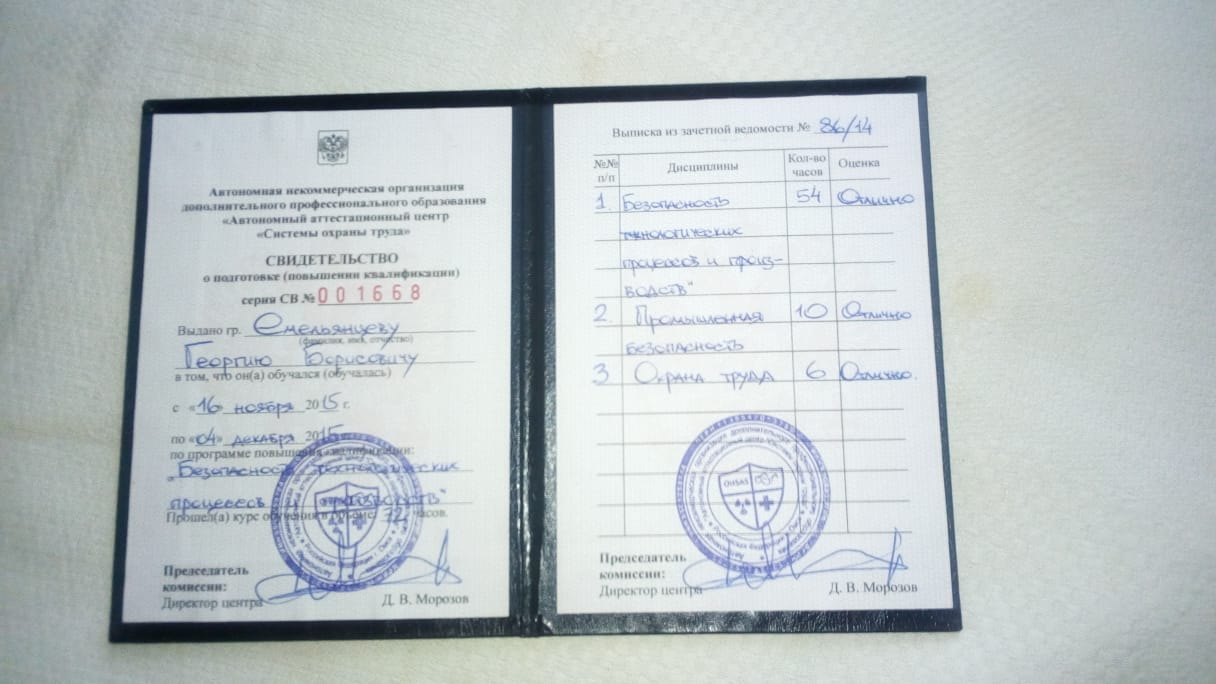 Автономная некоммерческая организация
дополнительного профессионального образования
«Автономный аттестационный центр
«Системы охраны труда»
СВИДЕТЕЛЬСТВО
о подготовке (повышении квалификации)
серия СВ № 001668
Выдано гр. Емельянцеву
(фамилия, имя, отчество)
Георгию Борисовичу
в том, что он(а) обучался (обучалась)
с «16» ноября 2015 г.
по «04» декабря 2015 г.
по программе повышения квалификации:
„Безопасность технологических
процессов производств"
Прошел(а) курс обучения в объеме 72 часов.
Председатель
комиссии:
Директор центра Д. В. Морозов
Выписка из зачетной ведомости № 86/14
№№ п/п Дисциплины Кол-во часов Оценка
1. Безопасность 54 Отлично
технологических
процессов и произ-
водств"
2. Промышленная 10 Отлично
безопасность
3 Охрана труда 6 Отлично.
OHSAS
Председатель
комиссии:
Директор центра Д. В. Морозов